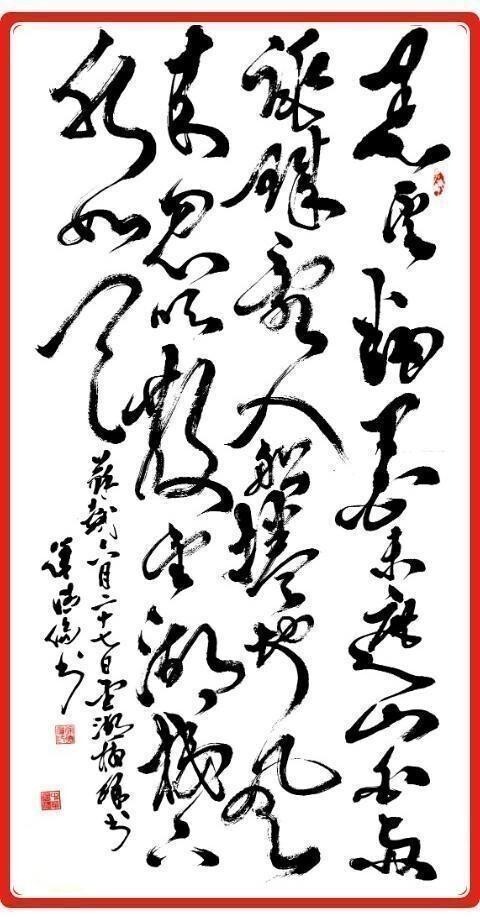 黑雲翻墨未遮山白雨
跳珠亂入船捲地風
來忽吹散望湖樓下
水如天
蘇軾六月二十七日望湖樓醉書
書